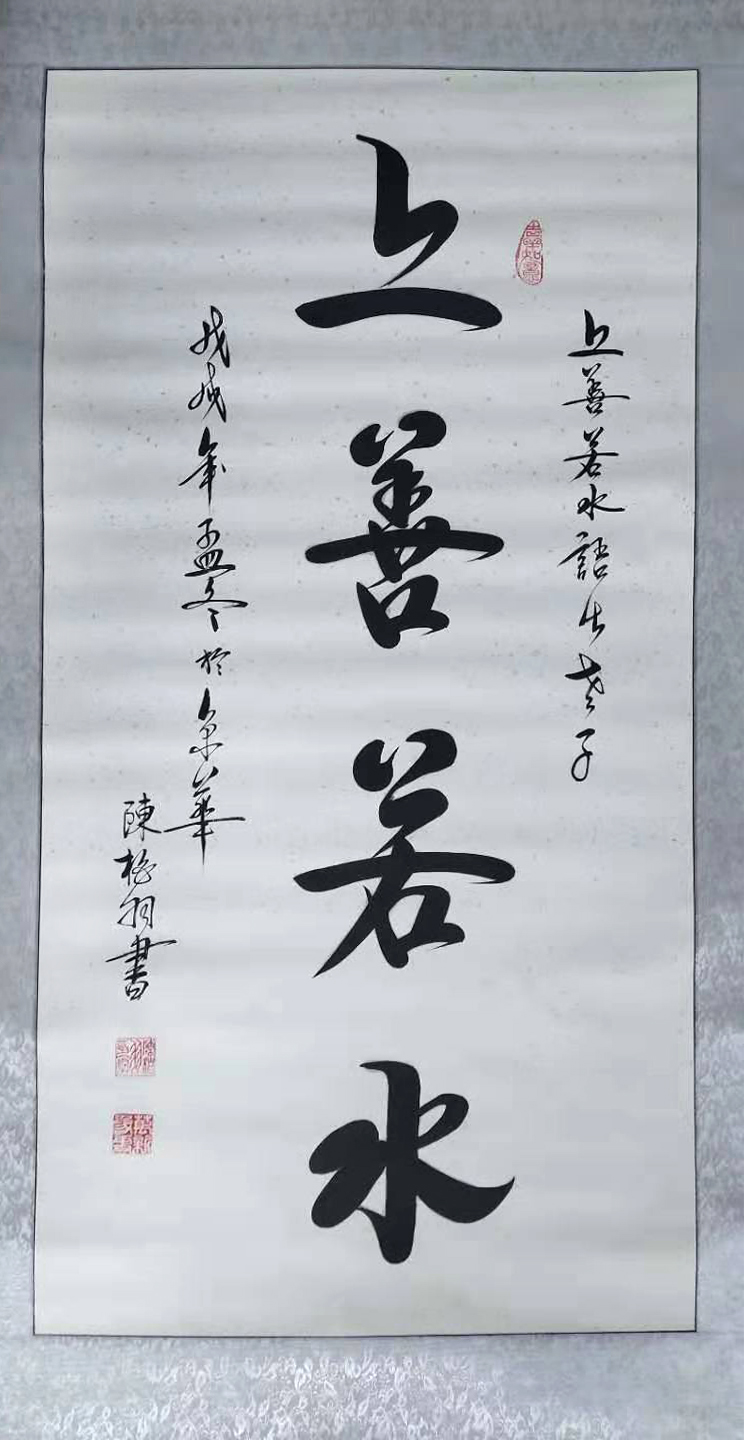 上善若水語出老子
上善若水
戊戌年孟冬於京華
陳梅羽書